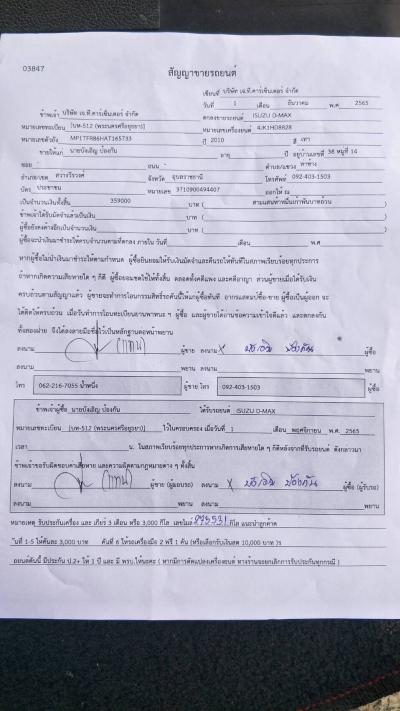 03847
สัญญาขายรถยนต์
เขียนที่ บริษัท เจ.ที.คาร์เซ็นเตอร์ จำกัด
วันที่ 1 เดือน ธันวาคม พ.ศ. 2565
ข้าพเจ้า บริษัท เจ.ที.คาร์เซ็นเตอร์ จำกัด ตกลงขายรถยนต์ ISUZU D-MAX
หมายเลขทะเบียน [บท-512 (พระนครศรีอยุธยา)] หมายเลขเครื่องยนต์ 4JK1HD8828
หมายเลขตัวถัง MP1TFR86HAT165733 ปี 2010 สี เทา
ขายให้แก่ นายบังเอิญ ป้องกัน อายุ ปี อยู่บ้านเลขที่ 38 หมู่ที่ 14
ซอย - ถนน - ตำบล/แขวง ท่าช้าง
อำเภอ/เขต สว่างวีรวงศ์ จังหวัด อุบลราชธานี โทรศัพท์ 092-403-1503
บัตร ประชาชน หมายเลข 3710900494407 ออกให้ ณ
เป็นจำนวนเงินทั้งสิ้น 359000 บาท ( สามแสนห้าหมื่นเก้าพันบาทถ้วน )
ข้าพเจ้าได้รับมัดจำแล้วเป็นเงิน บาท ( )
ผู้ซื้อยังคงค้างอีกเป็นจำนวนเงิน บาท ( )
ผู้ซื้อจะนำเงินมาชำระให้ครบจำนวนตามที่ตกลง ภายใน วันที่ เดือน พ.ศ.
หากผู้ซื้อไม่นำเงินมาชำระให้ตามกำหนด ผู้ซื้อยินยอมให้ริบเงินมัดจำและคืนรถให้ทันทีในสภาพเรียบร้อยทุกประการ
ถ้าหากเกิดความเสียหายใด ๆ ก็ดี ผู้ซื้อยอมชดใช้ให้ทั้งสิ้น ตลอดทั้งคดีแพ่ง และคดีอาญา ส่วนผู้ขายเมื่อได้รับเงิน
ครบถ้วนตามสัญญาแล้ว ผู้ขายจะทำการโอนกรรมสิทธิ์รถคันนี้ให้แก่ผู้ซื้อทันที อากรแสตมป์ซื้อ-ขาย ผู้ซื้อเป็นผู้ออก จะ
ได้คิดให้ครบถ้วน เมื่อวันทำการโอนทะเบียนยานพาหนะ ฯ ผู้ซื้อ และผู้ขายได้อ่านข้อความเข้าใจดีแล้ว และตกลงกัน
ทั้งสองฝ่าย จึงได้ลงลายมือชื่อไว้เป็นหลักฐานต่อหน้าพยาน
ลงนาม (แทน) ผู้ขาย ลงนาม x บังเอิญ ป้องกัน ผู้ซื้อ
ลงนาม พยาน ลงนาม พยาน
โทร 062-216-7055 น้ำหนึ่ง ผู้ขาย โทร 092-403-1503 ผู้ซื้อ
ข้าพเจ้าผู้ซื้อ นายบังเอิญ ป้องกัน ได้รับรถยนต์ ISUZU D-MAX
หมายเลขทะเบียน [บท-512 (พระนครศรีอยุธยา)] ไว้ในครอบครอง เมื่อวันที่ 1 เดือน พฤศจิกายน พ.ศ. 2565
เวลา น. ในสภาพเรียบร้อยทุกประการหากเกิดการเสียหายใด ๆ ก็ดีหลังจากที่รับรถยนต์ ดังกล่าวมา
ข้าพเจ้าขอรับผิดชอบค่าเสียหาย และความผิดตามกฎหมายต่าง ๆ ทั้งสิ้น
ลงนาม (แทน) ผู้ขาย (ผู้มอบรถ) ลงนาม x บังเอิญ ป้องกัน ผู้ซื้อ (ผู้รับรถ)
ลงนาม พยาน ลงนาม พยาน
หมายเหตุ รับประกันเครื่อง และ เกียร์ 3 เดือน หรือ 3,000 กิโล เลขไมล์ กิโล แนะนำลูกค้า
คันที่ 1-5 ให้คันละ 3,000 บาท คันที่ 6 ให้รถเครื่องมือ 2 ฟรี 1 คัน (หรือเลือกรับเงินสด 10,000 บาท )ร
ถยนต์คันนี้ มีประกัน ป.2+ ให้ 1 ปี และ มี พรบ.ให้นะคะ ( หากมีการดัดแปลงเครื่องยนต์ ทางร้านจะยกเลิกการรับประกันทุกกรณี )